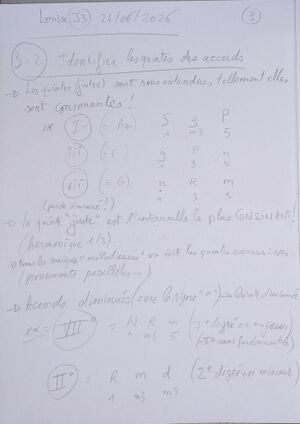 Louise J3 21/06/2026 3
3-2 Identifier les quintes des accords
→ Les quintes (justes) sont sous entendues, tellement elles
sont consonantes !
ex I- (= Am) S g P
1 -3 5
III (= C) g P n
1 3 5
VII (= G) n R m
1 3 5
→ la quinte "juste" est l'intervalle le plus CONSONANT !
(harmonique 1/3).
→ Dans les musiques "mélodieuses" on évite les quintes successives.
(mouvements parallèles...)
→ Accords diminués (avec le signe "°") → Quinte diminuée
ex = VII° = N R m (7e degré en majeur)
m3 5 (V7 sans fondamentale)
II° = R m d (2e degré en mineur)
1 m3